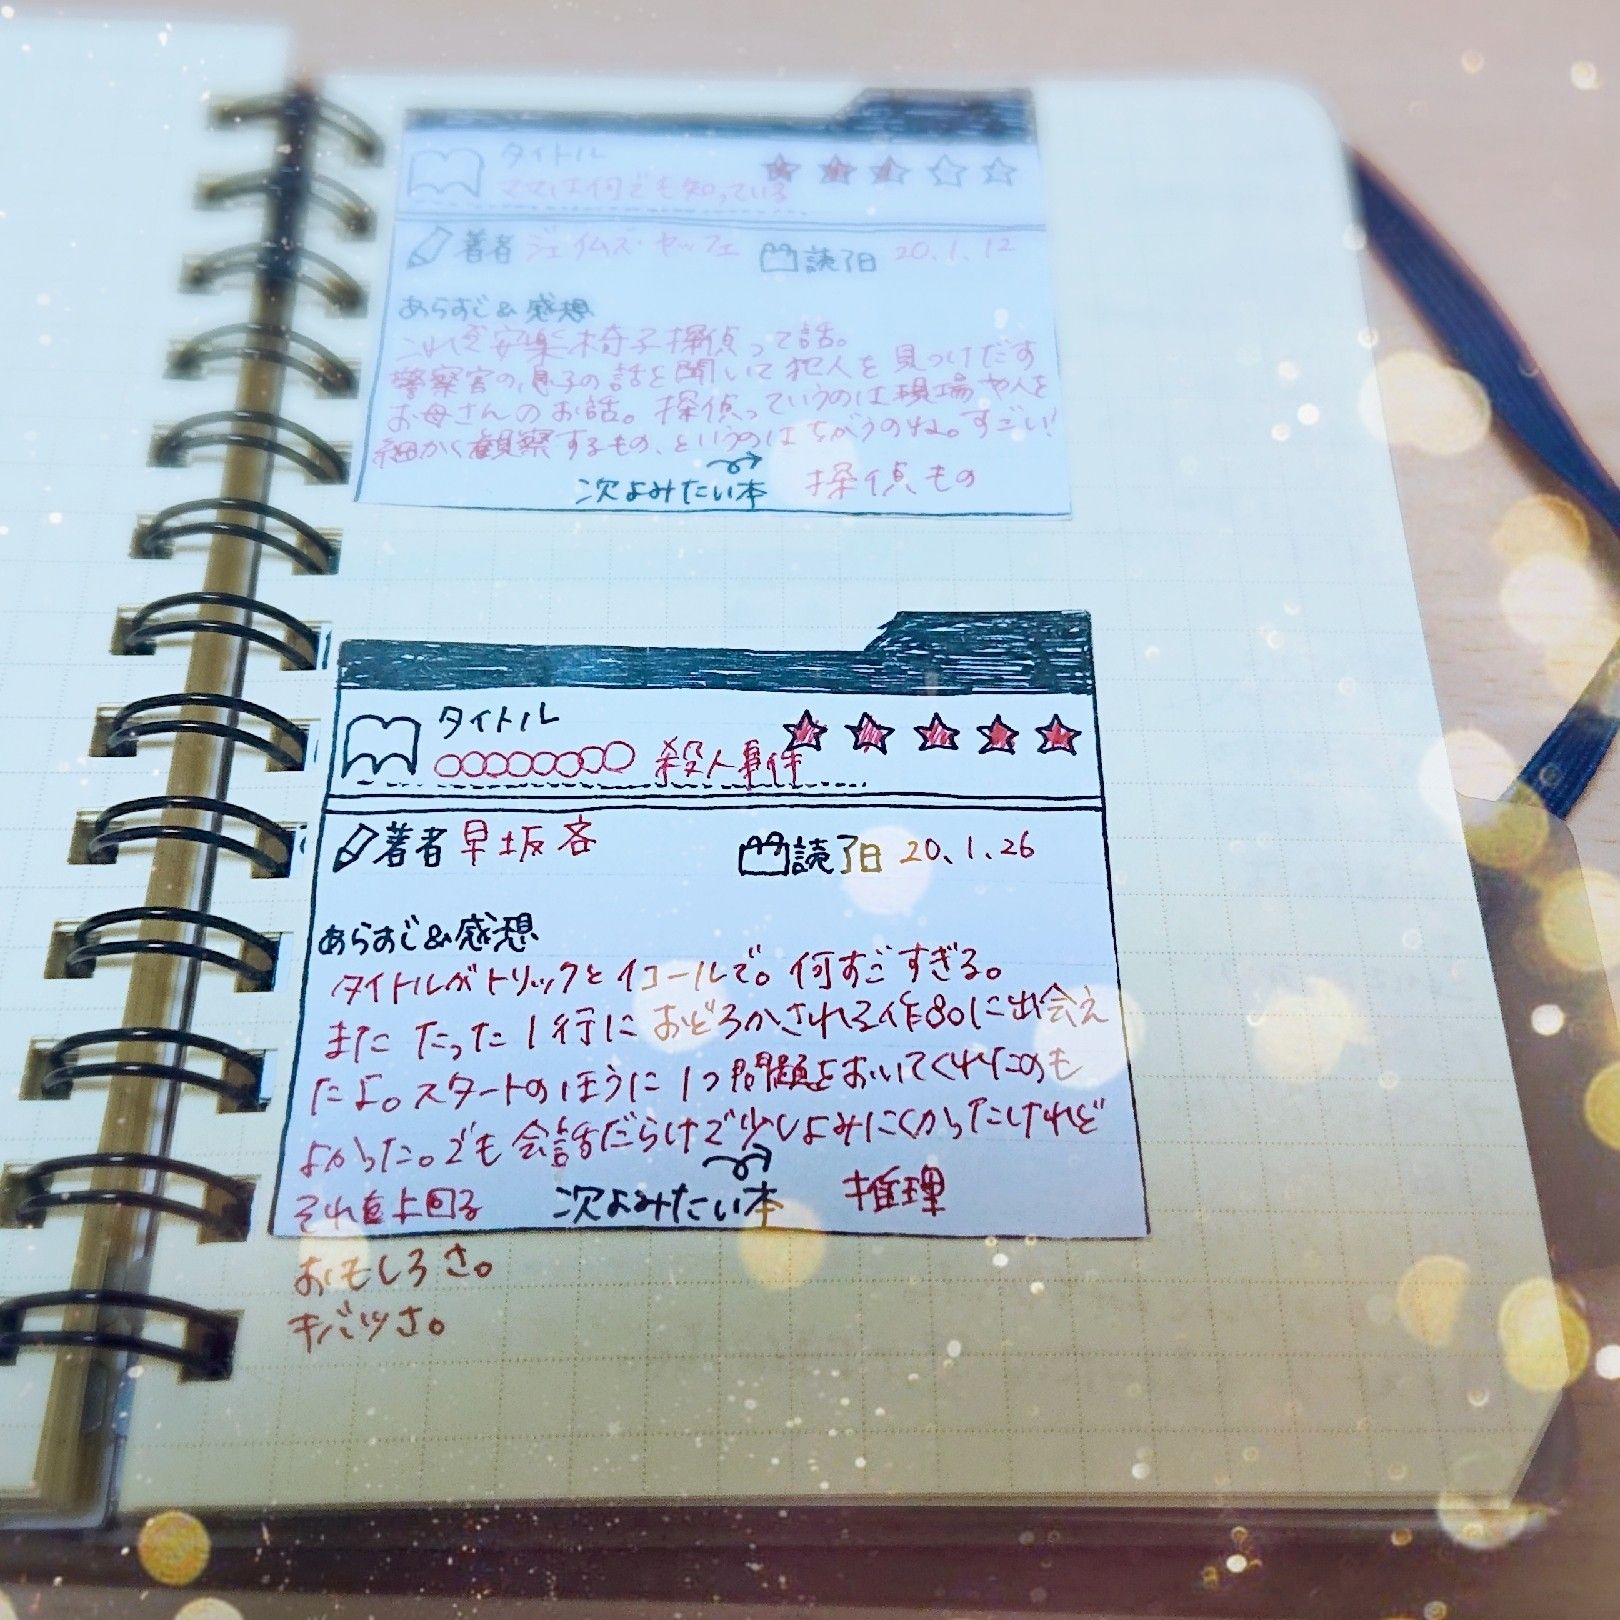 タイトル
ママは何でも知っている
著者 ジェイムズ・ヤッフェ 読了日 20.1.12
あらすじ&感想
これぞ安楽椅子探偵って話。
警察官の息子の話を聞いて犯人を見つけだす
お母さんのお話。探偵っていうのは現場や人を
細かく観察するもの、というのはちがうのね。すごい!
次よみたい本 探偵もの
タイトル
○○○○○○○○殺人事件
著者 早坂吝 読了日 20.1.26
あらすじ&感想
タイトルがトリックとイコールで。何すごすぎる。
また たった1行におどろかされる作品に出会え
たよ。スタートのほうに1つ問題をおいてくれたのも
よかった。でも会話だらけで少しよみにくかったけれど
それを上回る 次よみたい本 推理
おもしろさ。
キバツさ。